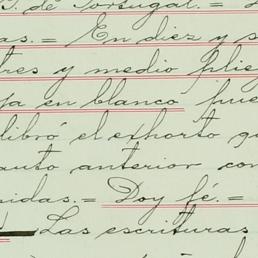 S. de Portugal.= L
as.= En diez y s
tres y medio plie
ja en blanco pue
libró el exhorto qu
auto anterior con
nidas.= Doy fé.=
Las escrituras